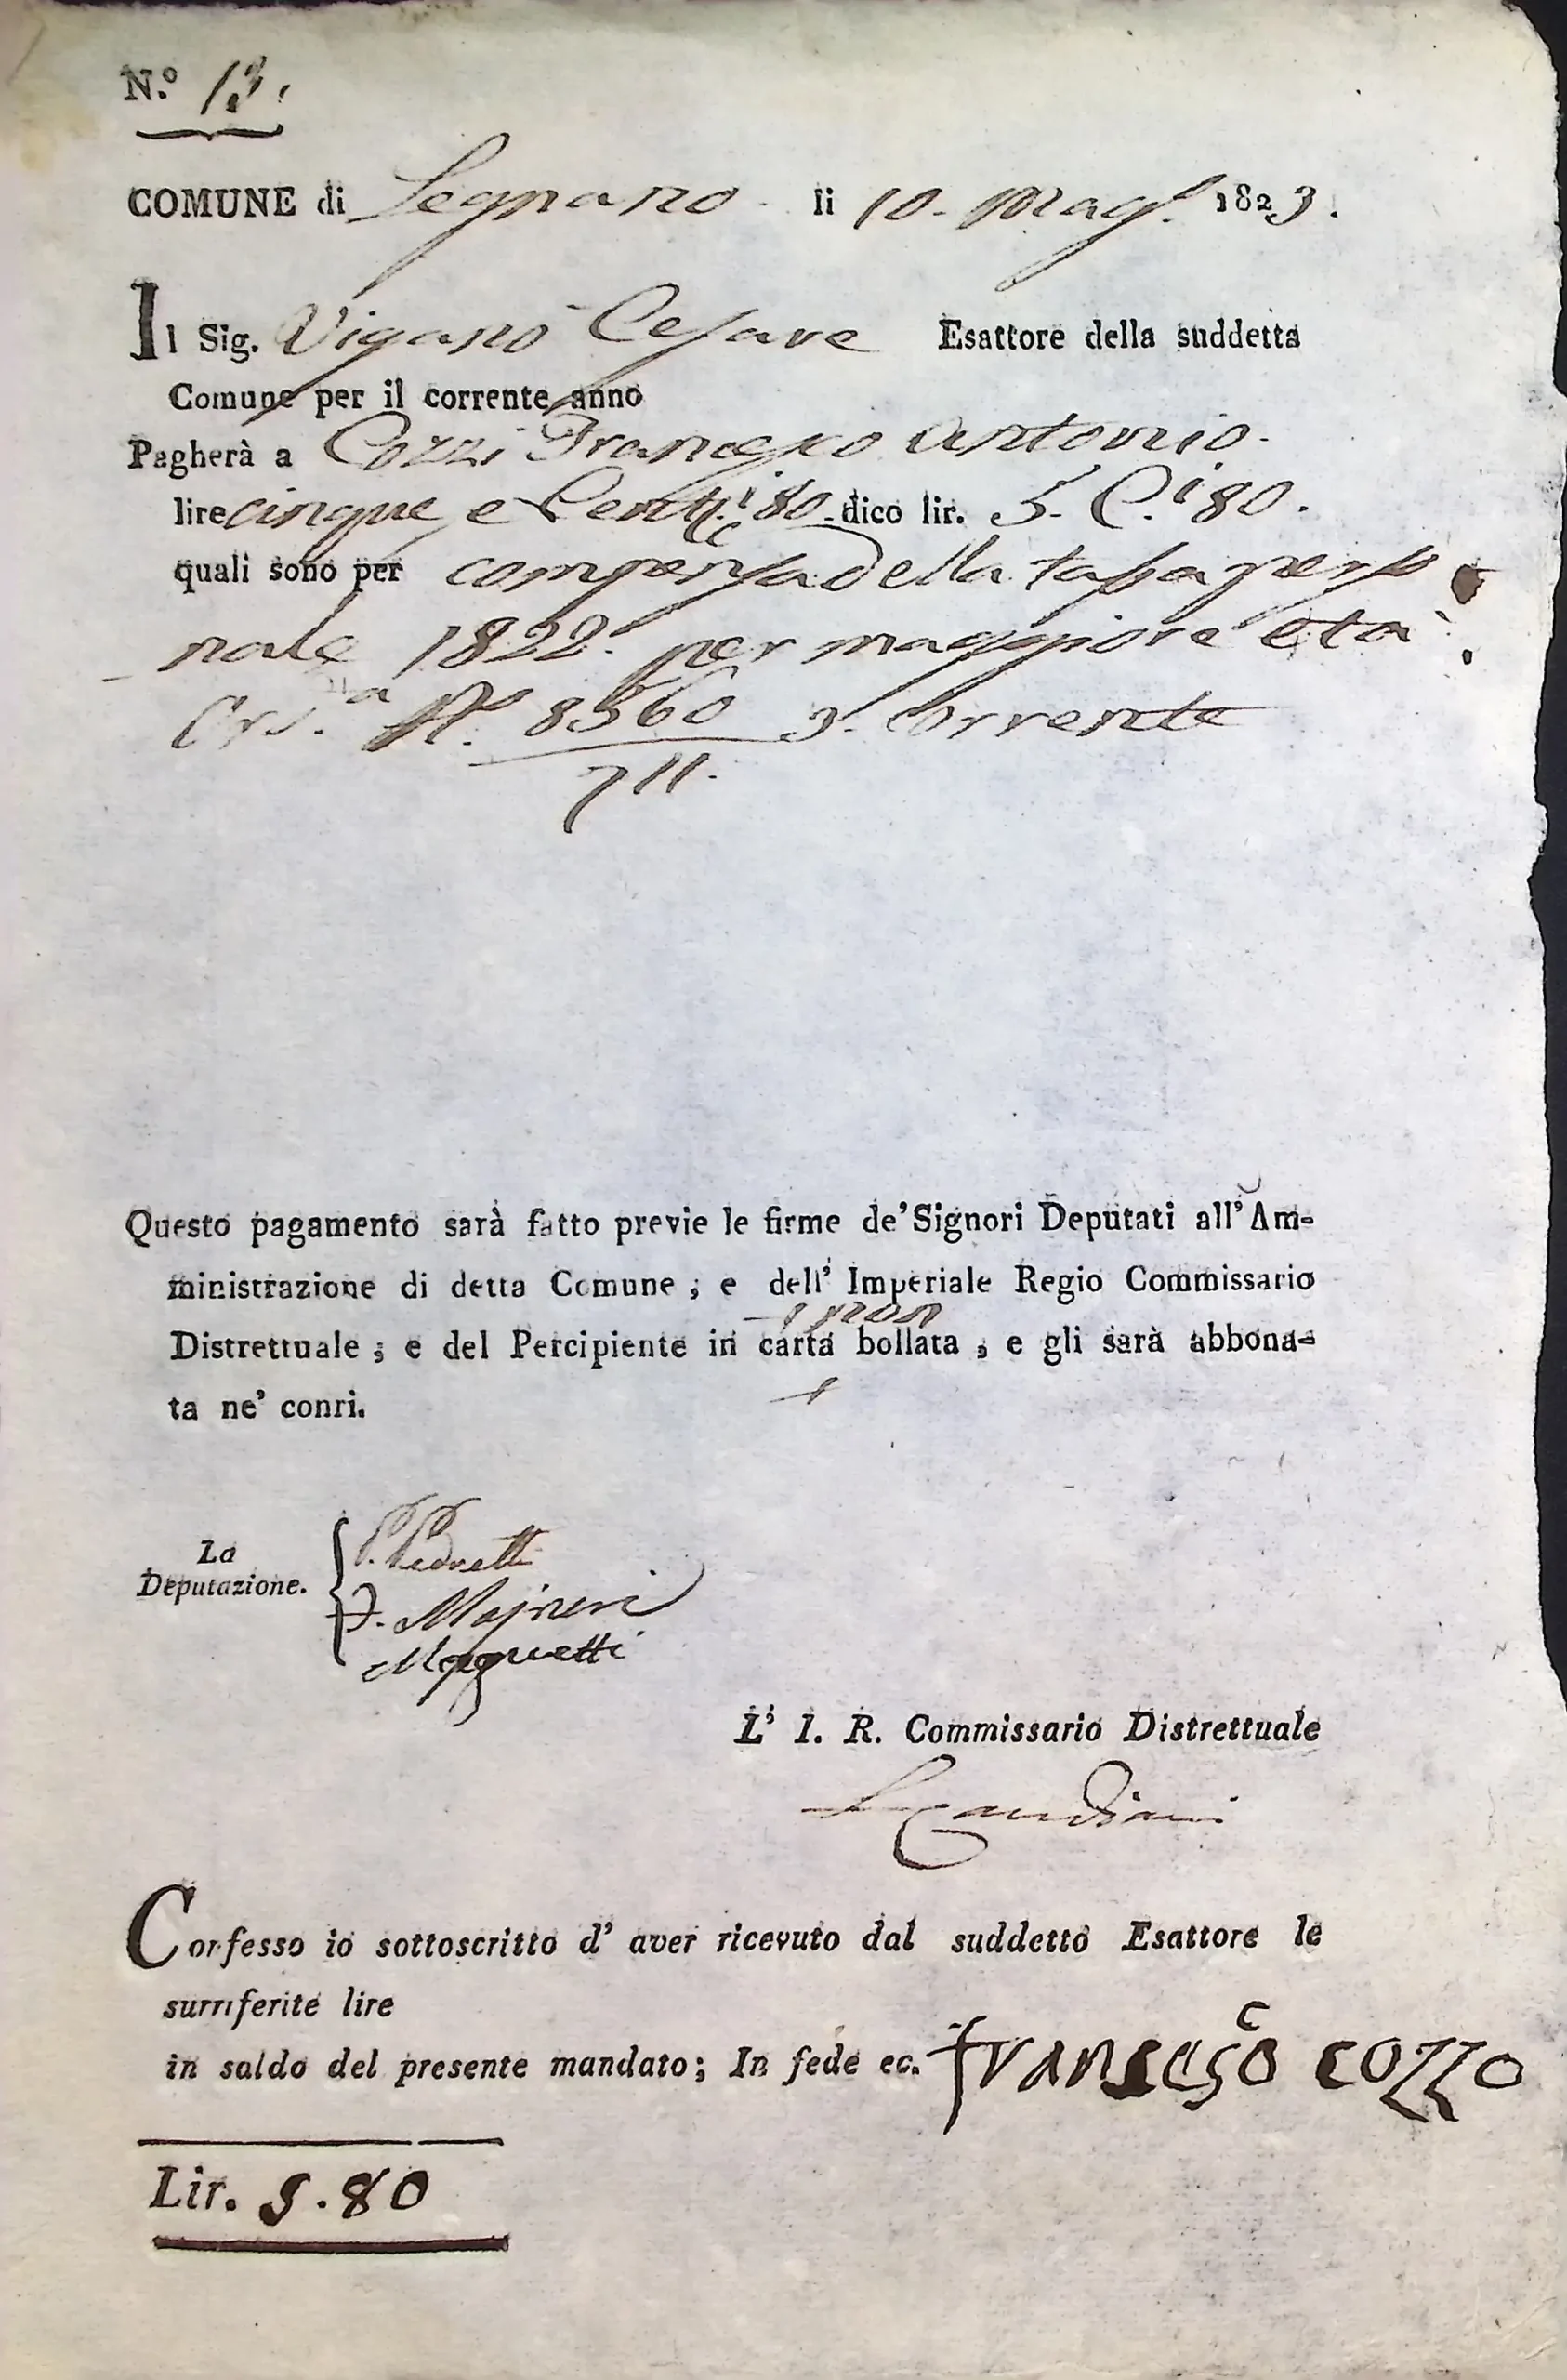 N.º 13.
COMUNE di Legnano li 10. Mag.º 1823.
Il Sig. Viganò Cesare Esattore della suddetta
Comune per il corrente anno
Pagherà a Cozzi Francesco Antonio.
lire cinque e Cent.i 80. dico lir. 5. C.i 80.
quali sono per compensa della tassa perso
nale 1822. per maggiore età
N.º 8560/711. 3. Corrente
Questo pagamento sarà fatto previe le firme de' Signori Deputati all' Am-
ministrazione di detta Comune; e dell' Imperiale Regio Commissario
non
Distrettuale; e del Percipiente in carta bollata; e gli sarà abbona-
ta ne' conti.
La
Deputazione.
P. Pedretti
F. Majneri
Magnetti
L' I. R. Commissario Distrettuale
Confesso io sottoscritto d' aver ricevuto dal suddetto Esattore le
surriferite lire
in saldo del presente mandato; In fede ec. francescο cozzo
Lir. 5.80